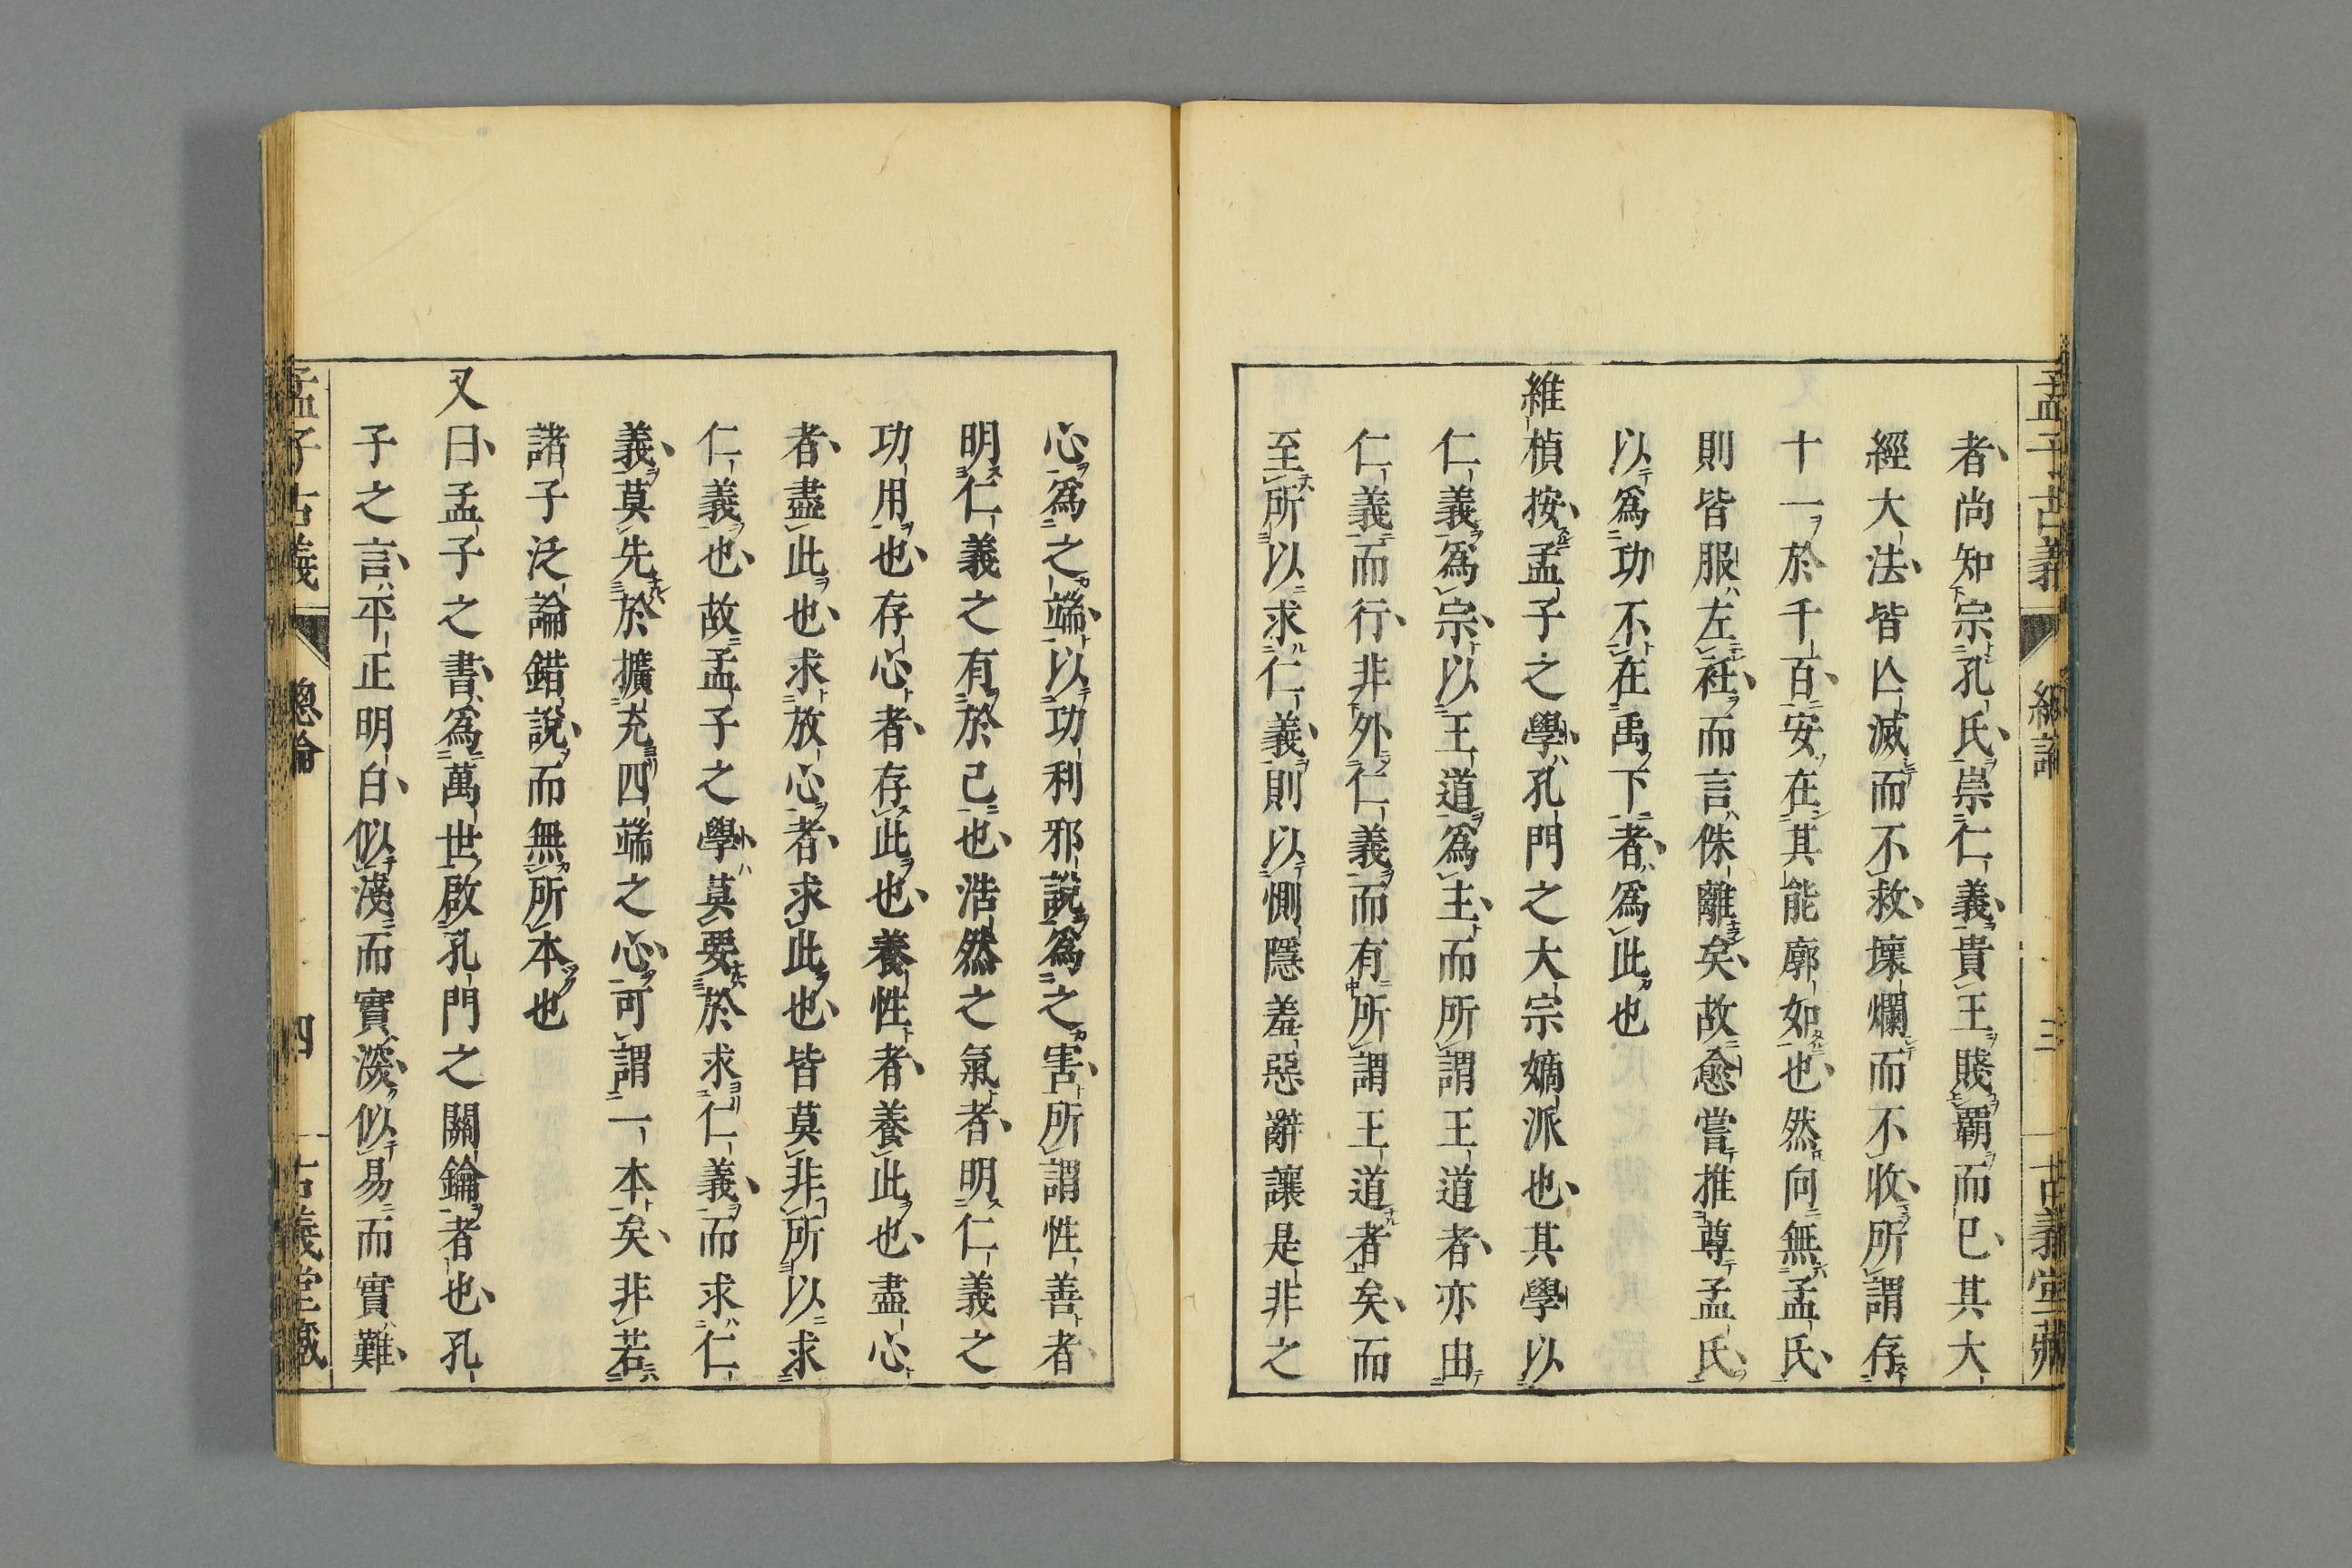 孟子古義 總論 三 古義堂藏
者尚知宗孔氏崇仁義貴王賤覇而已其大
經大法皆亾滅而不救壞爛而不收所謂存
十一於千百安在其能廓如也然向無孟氏
則皆服左衽而言侏離矣故愈嘗推尊孟氏
以爲功不在禹下者爲此也
維楨按孟子之學孔門之大宗嫡派也其學以
仁義爲宗以王道爲主而所謂王道者亦由
仁義而行非外仁義而有所謂王道者矣而
至所以求仁義則以惻隱羞惡辭讓是非之
心爲之端以功利邪說爲之害所謂性善者
明仁義之有於己也浩然之氣者明仁義之
功用也存心者存此也養性者養此也盡心
者盡此也求放心者求此也皆莫非所以求
仁義也故孟子之學莫要於求仁義而求仁
義莫先於擴充四端之心可謂一本矣非若
諸子泛論錯說而無所本也
又曰孟子之書爲萬世啟孔門之關鑰者也孔
子之言平正明白似淺而實深似易而實難
孟子古義 總論 四 古義堂藏